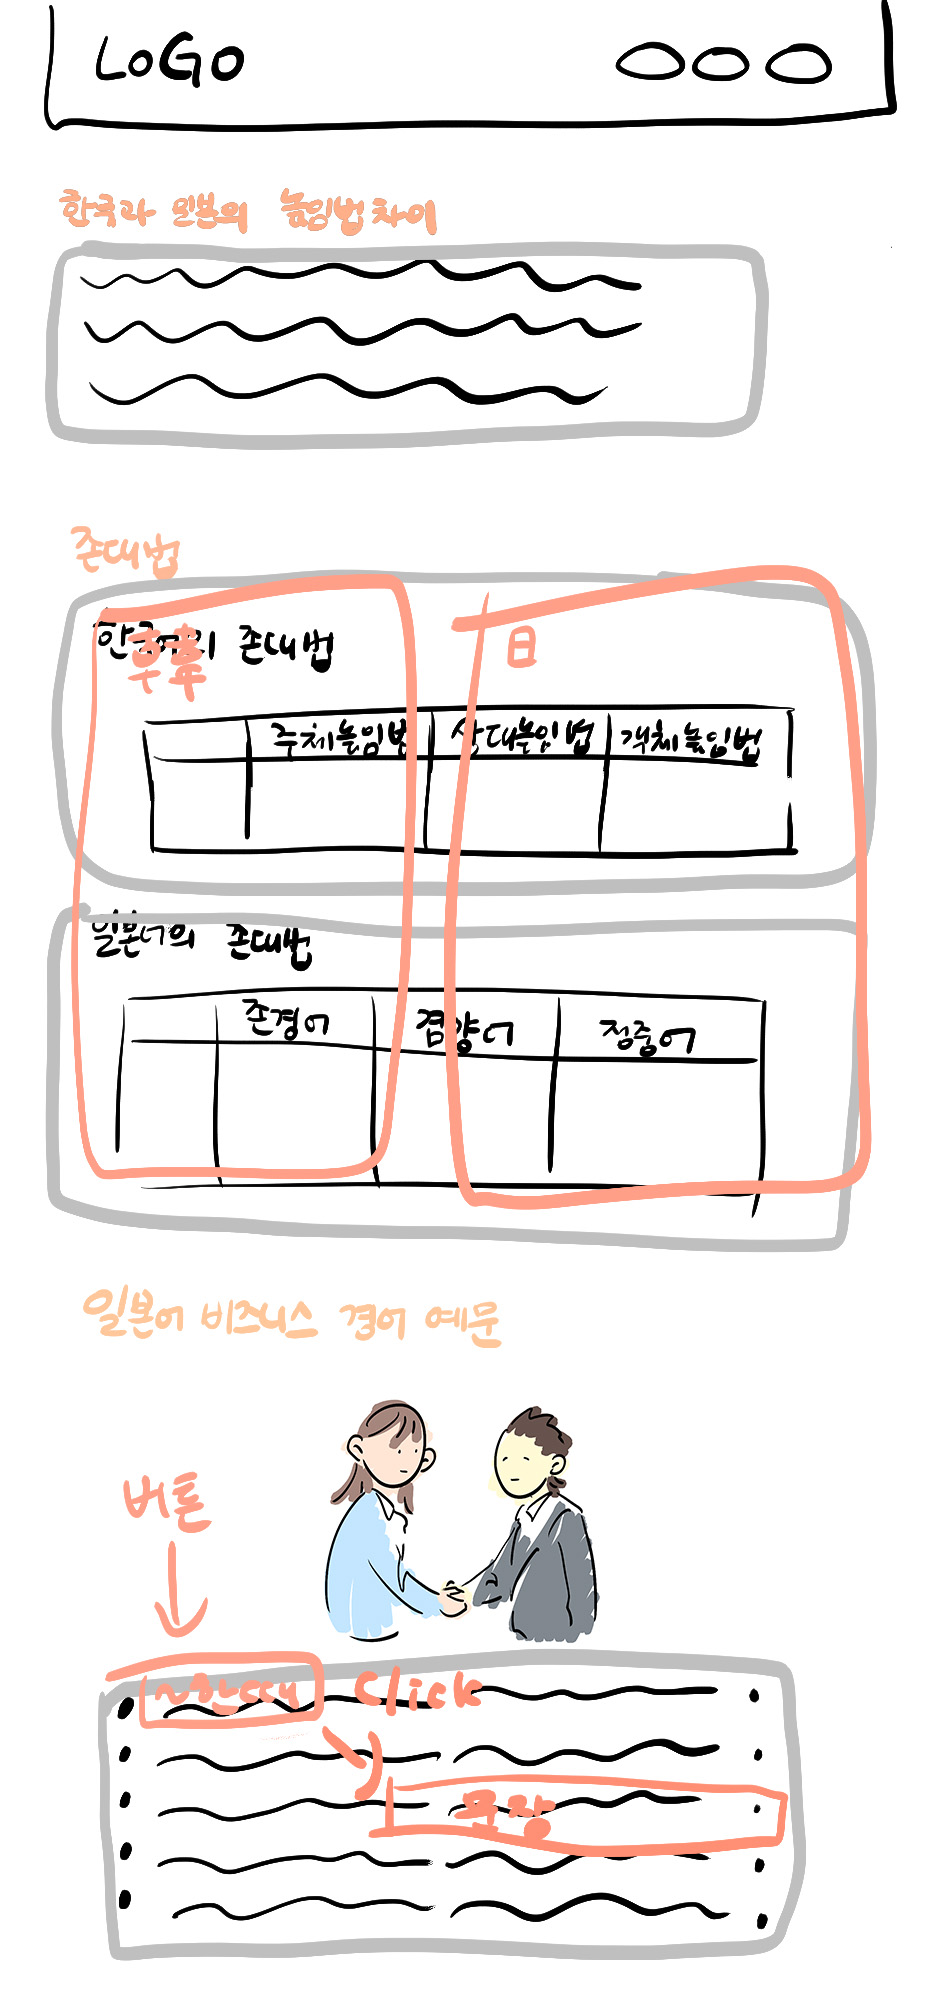 LOGO
한국과 일본의 높임법 차이
존대법
한국어의 존대법
韓
日
주체높임법 상대높임법 객체높임법
일본어의 존대법
존경어 겸양어 정중어
일본어 비즈니스 경어 예문
버튼
~한때 Click
문장